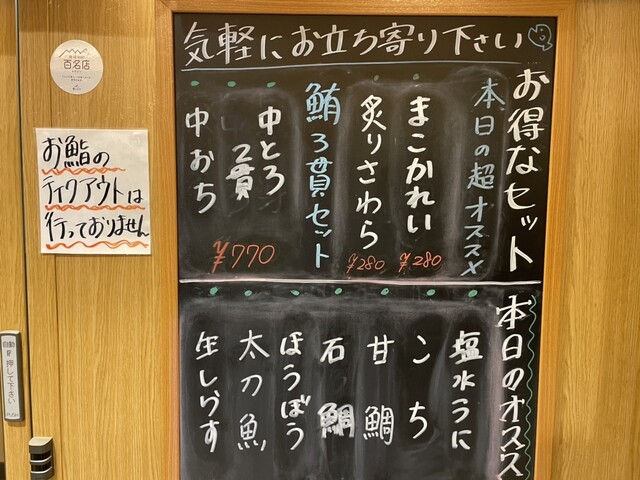 気軽にお立ち寄り下さい
お得なセット
本日の超オススメ
まこかれい
¥280
炙りさわら
¥280
鮪3貫セット
中とろ
2貫
中おち
¥770
本日のオススメ
塩水うに
こち
甘鯛
石鯛
ほうぼう
太刀魚
生しらす
百名店
お鮨の
テイクアウトは
行っておりません
自動
押して下さい